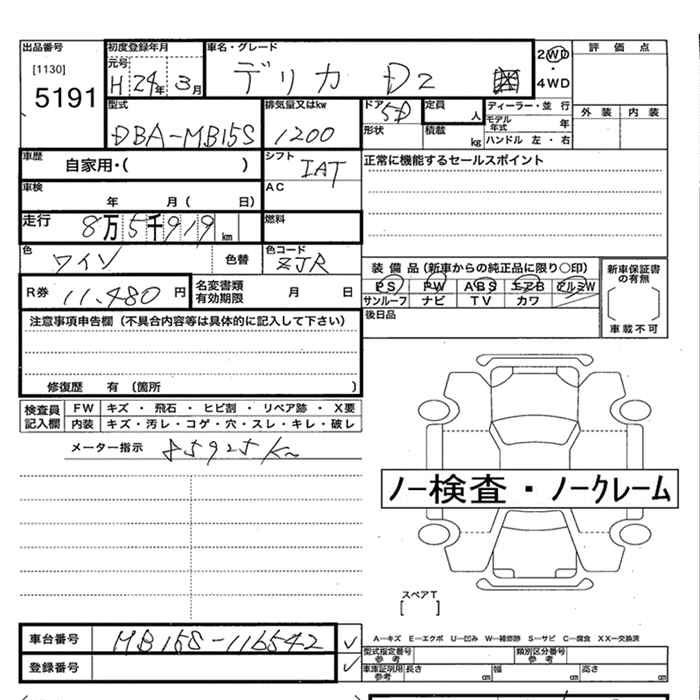 出品番号 初度登録年月 車名・グレード
[1130] 元号 H 24年 3月 デリカ D2 2WD ・ 4WD 評価点
5191
型式 排気量又はkw ドア 5D 定員 人 ディーラー・並行 外装 内装
DBA-MB15S 1200 形状 積載 kg モデル年式 年
ハンドル 左・右
車歴 自家用・( ) シフト IAT 正常に機能するセールスポイント
車検 年 月( 日) AC
走行 8万5千919km 燃料
色 ワイン 色替 色コード ZJR
装備品(新車からの純正品に限り○印) 新車保証書の有無
R券 11,480円 名変書類有効期限 月 日 PS PW ABS エアB アルミW
サンルーフ ナビ TV カワ
注意事項申告欄(不具合内容等は具体的に記入して下さい) 後日品 車載不可
修復歴 有(箇所 )
検査員記入欄 FW キズ・飛石・ヒビ割・リペア跡・X要
内装 キズ・汚レ・コゲ・穴・スレ・キレ・破レ
メーター指示 85925Km
ノー検査・ノークレーム
スペアT
[ ]
車台番号 MB15S-116542 ✓
A―キズ E―エクボ U―凹み W―補修跡 S―サビ C―腐食 XX―交換済
型式指定番号 参考 類別区分番号 参考
登録番号 ✓ 車庫証明用 参考 長さ cm 幅 cm 高さ cm